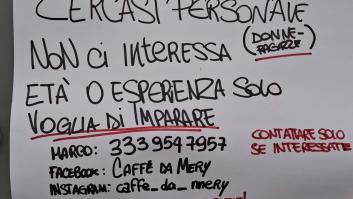 CERCASI PERSONALE
NON Ci iNTERESSA (DONNE-RAGAZZE)
ETÀ O ESPERIENZA SOLO
VOGLIA Di IMPARARE
MARCO: 3339547957
FACEBOOK: CAFFÈ DA MERY
INSTAGRAM: caffe_da_mery
CONTATTARE SOLO
SE INTERESSATE